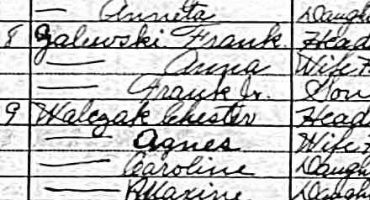 — Anneta Daugh
8 Zalewski Frank Head
— Anna Wife
— Frank Jr. Son
9 Walczak Chester Head
— Agnes Wife
— Caroline Daugh
— Maxine Daugh